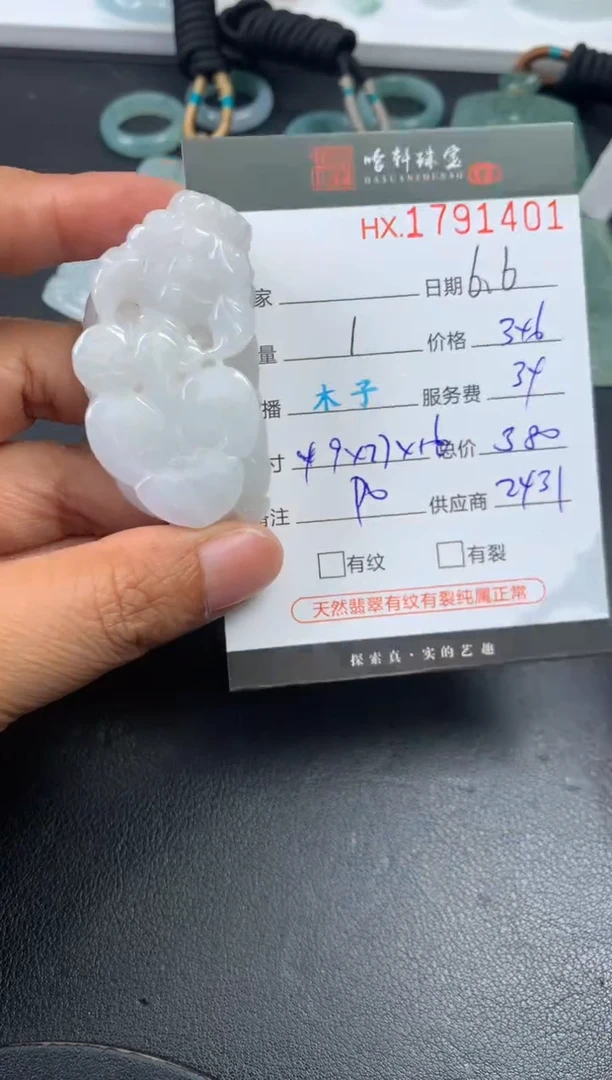 哈轩珠宝
HAXUANZHUBAO
HX.1791401
家 日期 6.6
量 1 价格 346
播 木子 服务费 34
寸 49×27×16 总价 380
备注 供应商 2431
□有纹 □有裂
天然翡翠有纹有裂纯属正常
探索真·实的艺趣